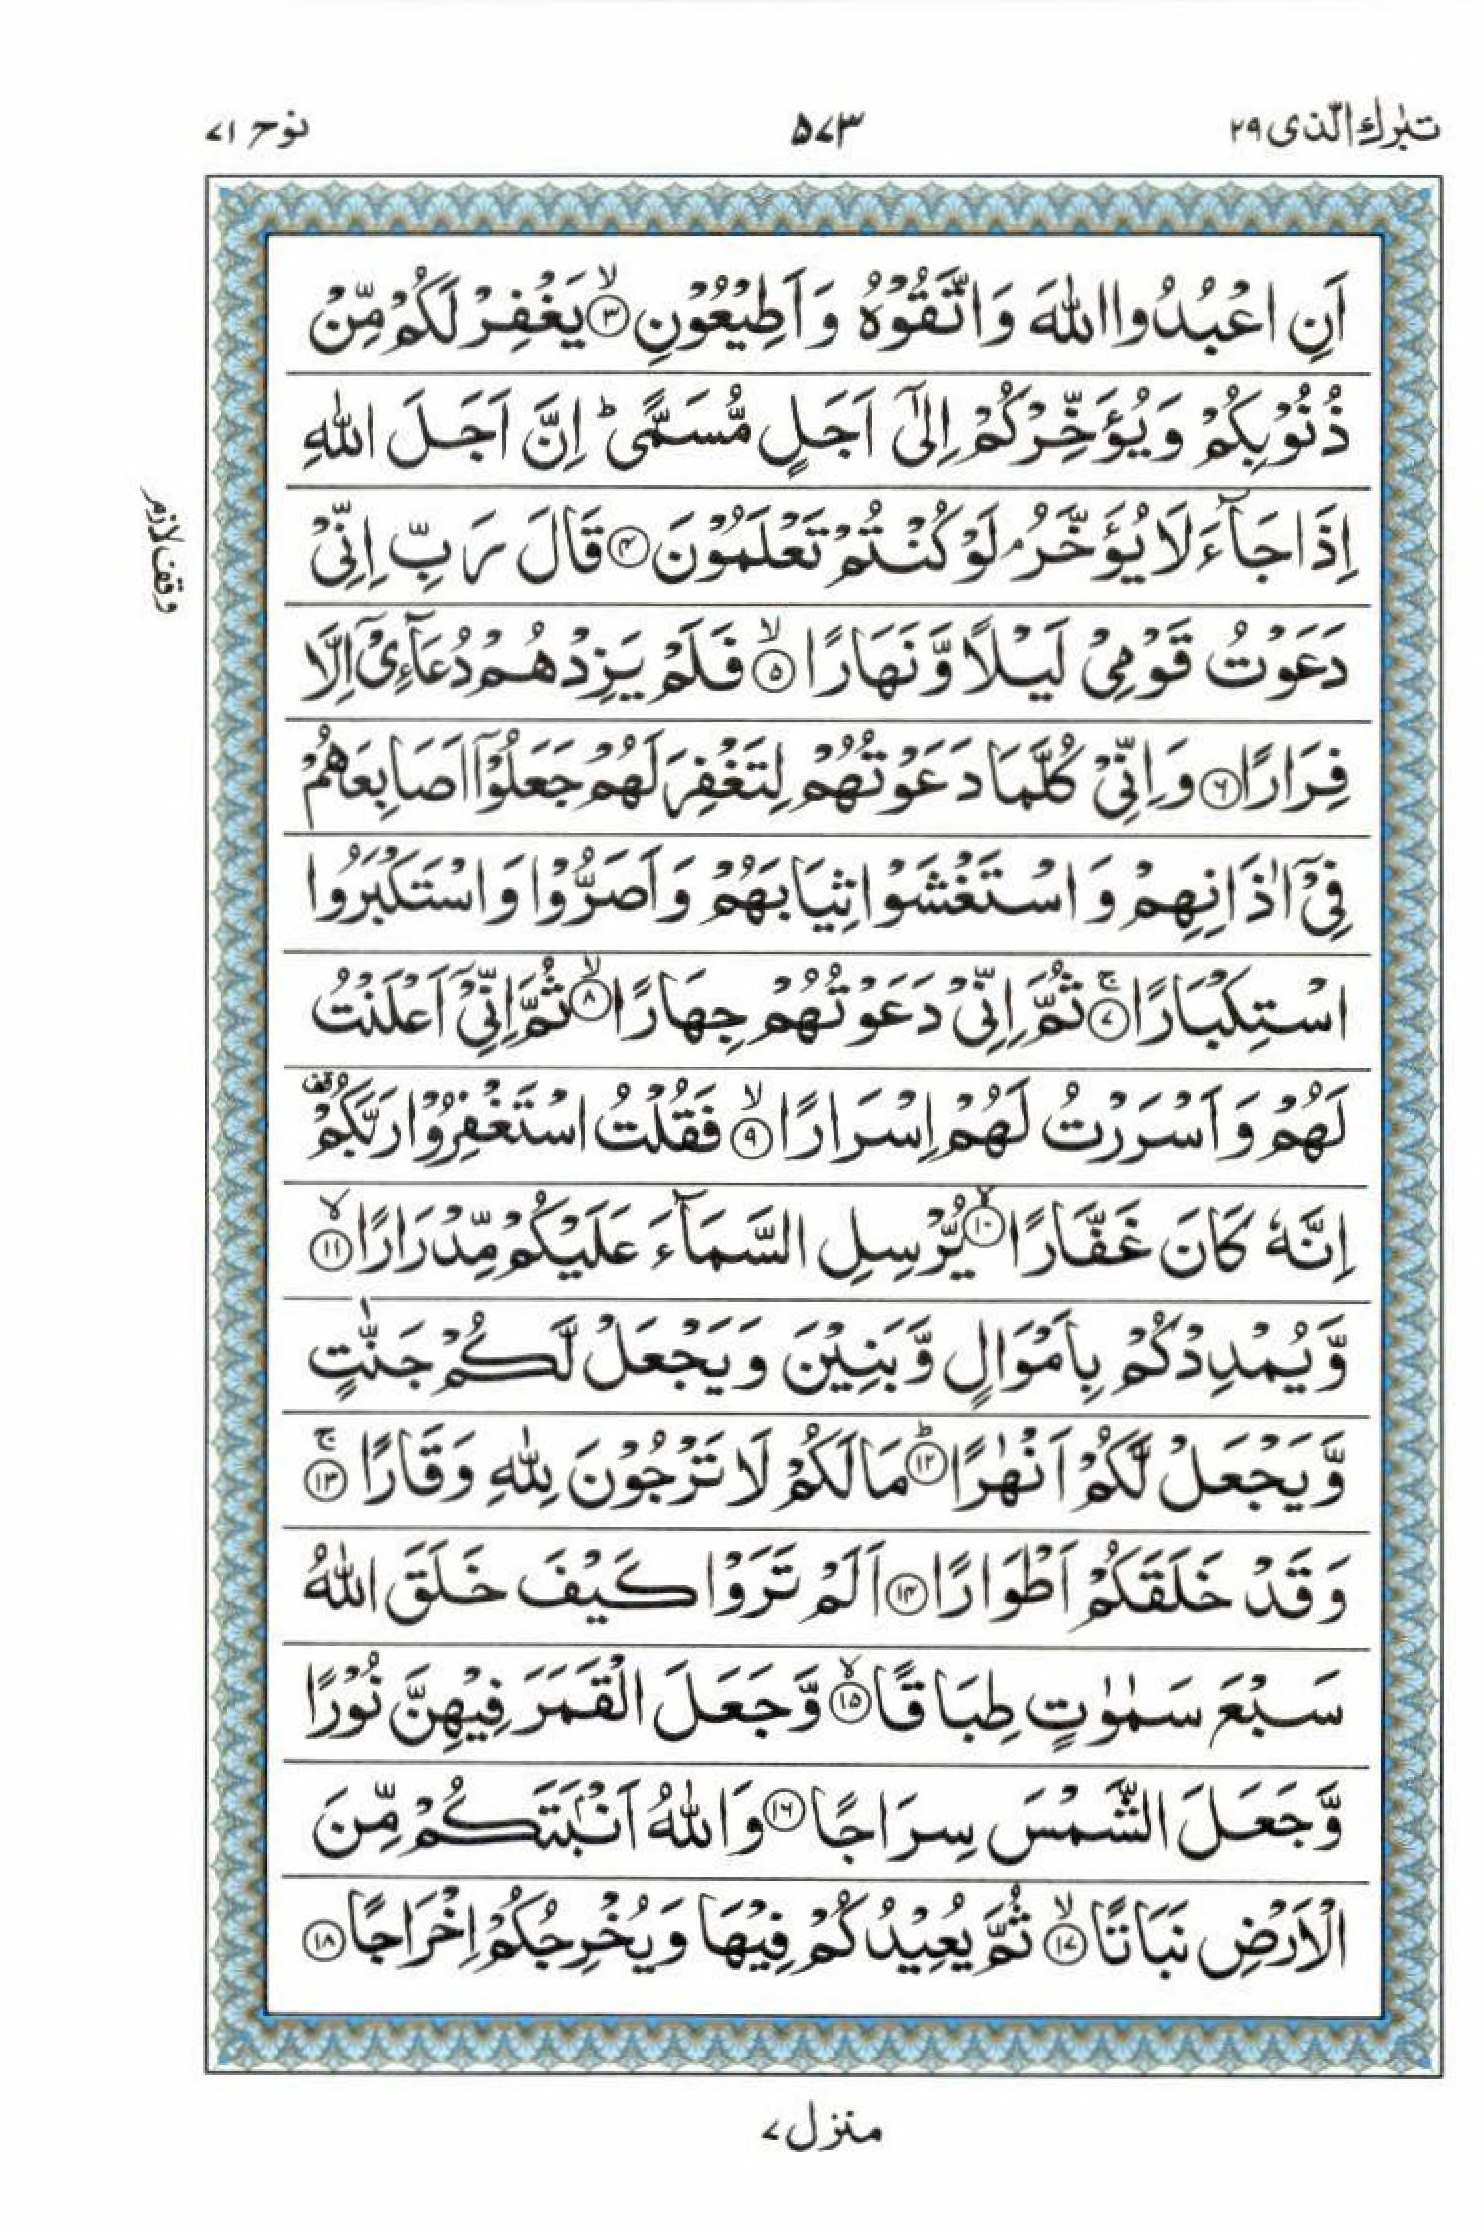 تبٰرك الّذی ۲۹
۵۷۳
نوح ۷۱
اَنِ اعْبُدُوا اللّٰهَ وَاتَّقُوْهُ وَاَطِيْعُوْنِ ۙ‏﴿۳﴾ يَغْفِرْ لَكُمْ مِّنْ
ذُنُوْبِكُمْ وَيُؤَخِّرْكُمْ اِلٰٓى اَجَلٍ مُّسَمًّى ؕ اِنَّ اَجَلَ اللّٰهِ
اِذَا جَآءَ لَا يُؤَخَّرُ ۘ لَوْ كُنْتُمْ تَعْلَمُوْنَ ﴿۴﴾ قَالَ رَبِّ اِنِّىْ
وقف لازم
دَعَوْتُ قَوْمِىْ لَيْلًا وَّنَهَارًا ۙ﴿۵﴾ فَلَمْ يَزِدْهُمْ دُعَآءِىْۤ اِلَّا
فِرَارًا ﴿۶﴾ وَاِنِّىْ كُلَّمَا دَعَوْتُهُمْ لِتَغْفِرَ لَهُمْ جَعَلُوْۤا اَصَابِعَهُمْ
فِىْۤ اٰذَانِهِمْ وَاسْتَغْشَوْا ثِيَابَهُمْ وَاَصَرُّوْا وَاسْتَكْبَرُوا
اسْتِكْبَارًا ۚ﴿۷﴾ ثُمَّ اِنِّىْ دَعَوْتُهُمْ جِهَارًا ۙ﴿۸﴾ ثُمَّ اِنِّىْۤ اَعْلَنْتُ
لَهُمْ وَاَسْرَرْتُ لَهُمْ اِسْرَارًا ۙ﴿۹﴾ فَقُلْتُ اسْتَغْفِرُوْا رَبَّكُمْ قف
اِنَّهٗ كَانَ غَفَّارًا ۙ﴿۱۰﴾ يُّرْسِلِ السَّمَآءَ عَلَيْكُمْ مِّدْرَارًا ۙ﴿۱۱﴾
وَّيُمْدِدْكُمْ بِاَمْوَالٍ وَّبَنِيْنَ وَيَجْعَلْ لَّكُمْ جَنّٰتٍ
وَّيَجْعَلْ لَّكُمْ اَنْهٰرًا ؕ﴿۱۲﴾ مَا لَكُمْ لَا تَرْجُوْنَ لِلّٰهِ وَقَارًا ۚ﴿۱۳﴾
وَقَدْ خَلَقَكُمْ اَطْوَارًا ﴿۱۴﴾ اَلَمْ تَرَوْا كَيْفَ خَلَقَ اللّٰهُ
سَبْعَ سَمٰوٰتٍ طِبَاقًا ۙ﴿۱۵﴾ وَّجَعَلَ الْقَمَرَ فِيْهِنَّ نُوْرًا
وَّجَعَلَ الشَّمْسَ سِرَاجًا ﴿۱۶﴾ وَاللّٰهُ اَنْۢبَتَكُمْ مِّنَ
الْاَرْضِ نَبَاتًا ۙ﴿۱۷﴾ ثُمَّ يُعِيْدُكُمْ فِيْهَا وَيُخْرِجُكُمْ اِخْرَاجًا ﴿۱۸﴾
منزل ۷